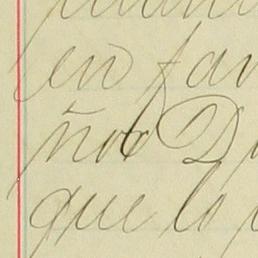 en fav
ños D
que lo